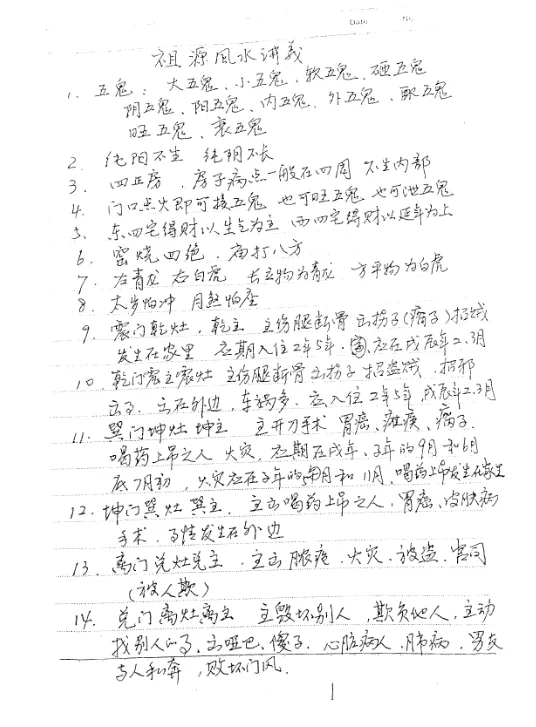 Date No
祖源风水讲义
1. 五鬼：大五鬼、小五鬼、软五鬼、硬五鬼
阴五鬼、阳五鬼、内五鬼、外五鬼、歌五鬼
旺五鬼、衰五鬼
2. 纯阳不生 纯阴不长
3. 四正房，房子病点一般在四周 不生内部
4. 门口点火即可接五鬼 也可旺五鬼 也可泄五鬼
5. 东四宅得财以生气为主 西四宅得财以延年为上
6. 窑烧四绝，庙打八方
7. 左青龙 右白虎 长立物为青龙 方平物为白虎
8. 太岁怕冲 月煞怕座
9. 震门乾灶，乾主 主伤腿断骨 出拐子(瘸子)招贼
发生在家里 应期入住2年5年. 应在戌辰年2.3月
10. 乾门震主震灶 主伤腿断骨出拐子 招盗贼. 招邪
出在外边，车祸多. 应入住2年5年，戌辰年2.3月
11. 巽门坤灶 坤主 主开刀手术 胃癌、瘫痪、瘸子.
喝药上吊之人 火灾，应期在戌年、子年的9月和6月
底7月初，火灾应在子年的 月和11月，喝药上吊发生在家里
12. 坤门巽灶 巽主. 主出喝药上吊之人，胃癌、皮肤病
手术. 事情发生在外边
13. 离门兑灶兑主. 主出 火灾. 被盗. 官司
(被人欺)
14. 兑门离灶离主 主毁坏别人，欺负他人，主动
找别人的事. 出哑巴、傻子. 心脏病人. 肺病. 男女
与人私奔，败坏门风.
1